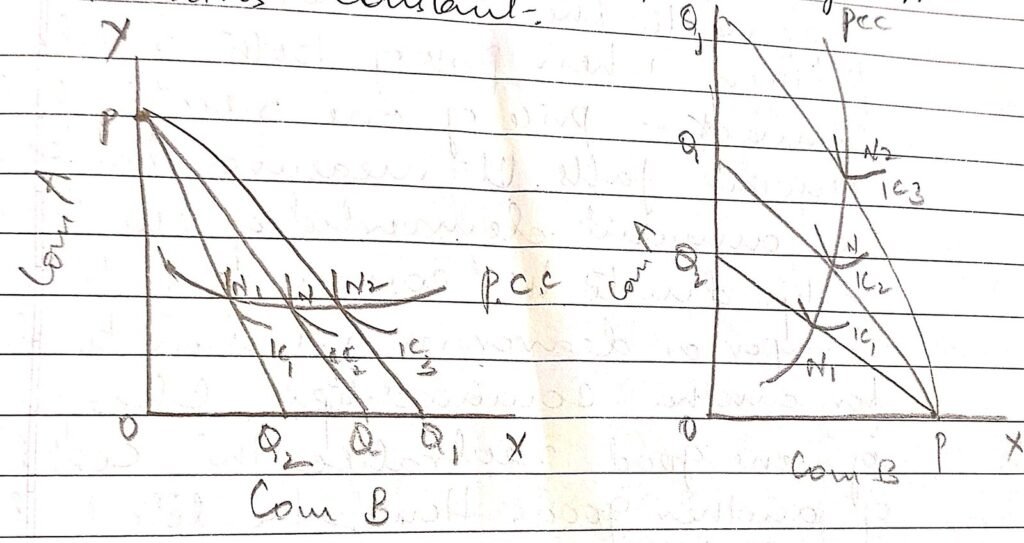 constant.
Y
P
Com A
N1 N N2
P.C.C
IC1 IC2 IC3
O Q2 Q Q1 X
Com B
PCC
Q1
Q
Q2
Com A
N2
IC3
N
IC2
IC1
N1
O P X
Com B